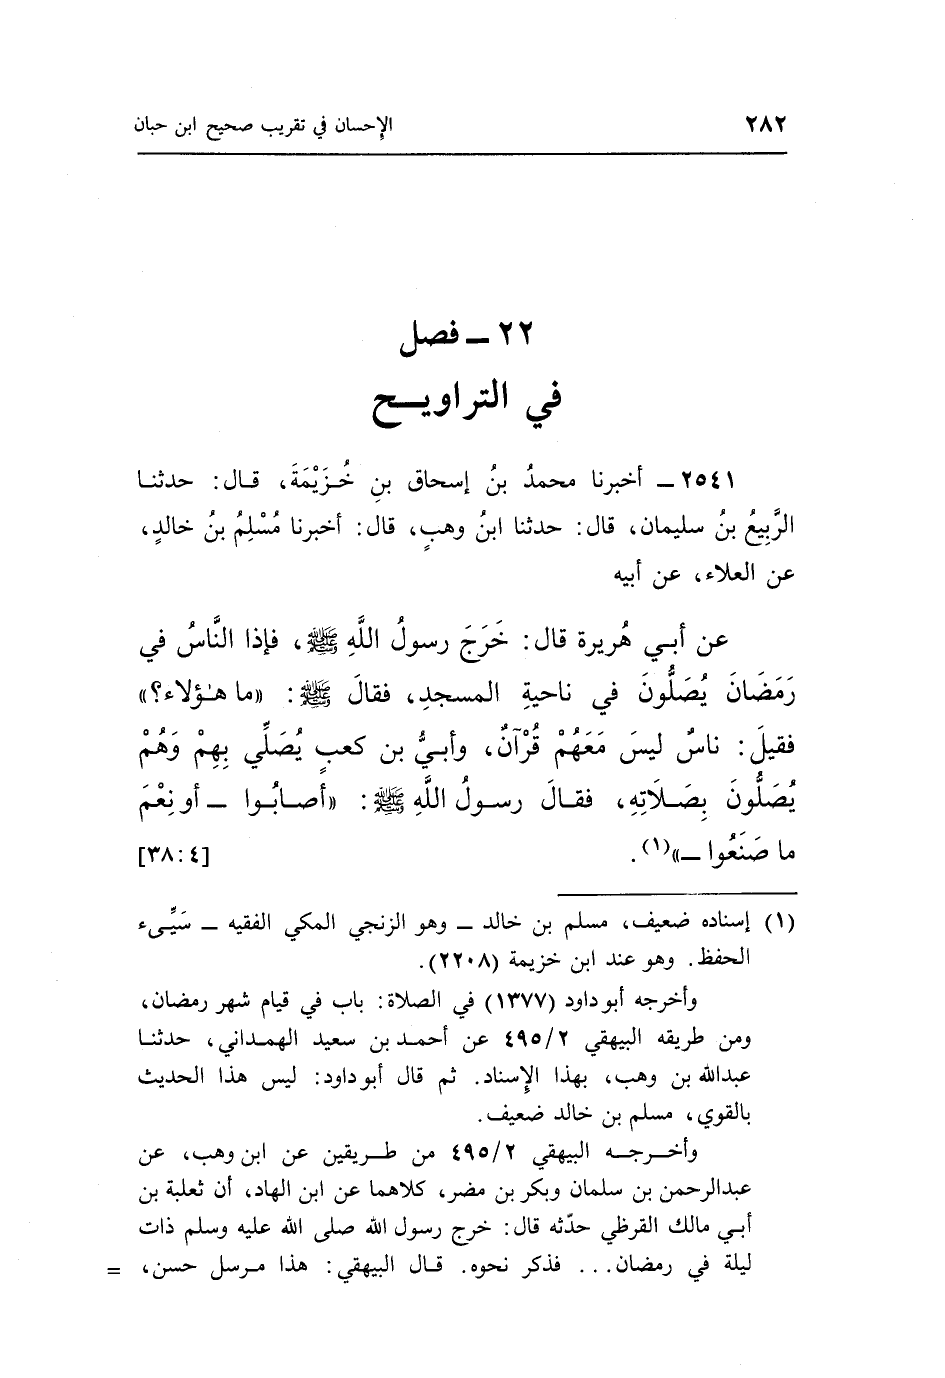 ٢٨٢ الإحسان في تقريب صحيح ابن حبان
٢٢ ـ فصل
في التراويـــح
٢٥٤١ ـ أخبرنا محمدُ بنُ إسحاق بنِ خُزَيْمَةَ، قال: حدثنا
الرَّبِيعُ بنُ سليمان، قال: حدثنا ابنُ وهبٍ، قال: أخبرنا مُسْلِمُ بنُ خالدٍ،
عن العلاء، عن أبيه
عن أبي هُريرة قال: خَرَجَ رسولُ اللَّهِ ﷺ، فإذا النَّاسُ في
رَمَضَانَ يُصَلُّونَ في ناحيةِ المسجدِ، فقالَ ﷺ: «ما هـٰؤلاء؟»
فقيلَ: ناسٌ ليسَ مَعَهُمْ قُرْآنٌ، وأبيُّ بن كعبٍ يُصَلِّي بِهِمْ وَهُمْ
يُصَلُّونَ بِصَلَاتِهِ، فقالَ رسولُ اللَّهِ ﷺ: «أصابُوا ـ أو نِعْمَ
ما صَنَعُوا ـ»(١). [٣٨:٤]
(١) إسناده ضعيف، مسلم بن خالد ـ وهو الزنجي المكي الفقيه ـ سَيِّىء
الحفظ. وهو عند ابن خزيمة (٢٢٠٨).
وأخرجه أبو داود (١٣٧٧) في الصلاة: باب في قيام شهر رمضان،
ومن طريقه البيهقي ٤٩٥/٢ عن أحمد بن سعيد الهمداني، حدثنا
عبدالله بن وهب، بهذا الإسناد. ثم قال أبو داود: ليس هذا الحديث
بالقوي، مسلم بن خالد ضعيف.
وأخرجه البيهقي ٤٩٥/٢ من طريقين عن ابن وهب، عن
عبدالرحمن بن سلمان وبكر بن مضر، كلاهما عن ابن الهاد، أن ثعلبة بن
أبي مالك القرظي حدّثه قال: خرج رسول الله صلى الله عليه وسلم ذات
ليلة في رمضان... فذكر نحوه. قال البيهقي: هذا مرسل حسن، =